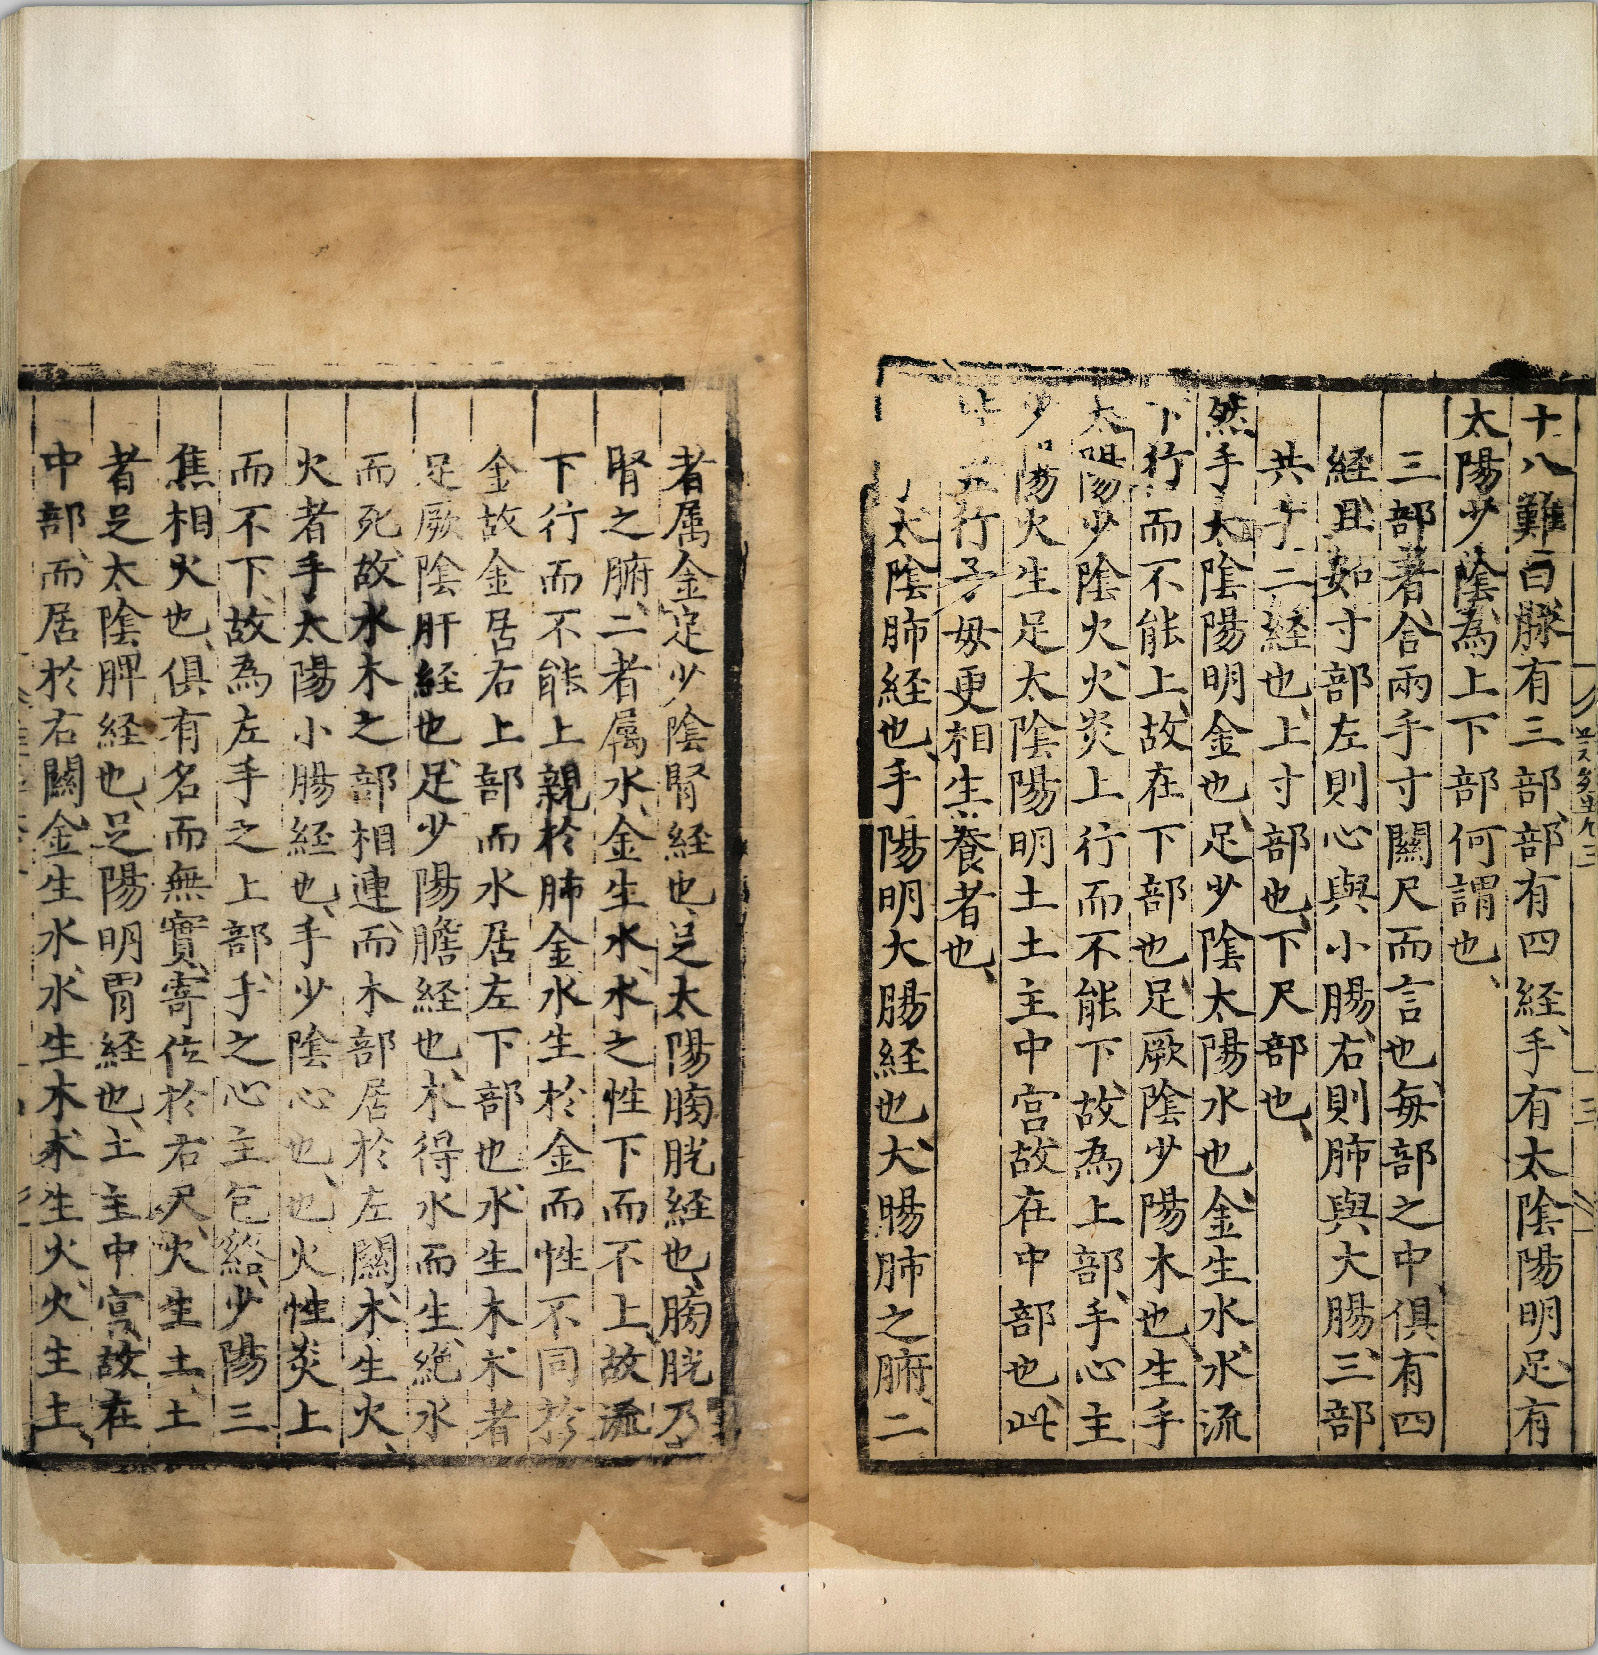 十八難曰脉有三部、部有四経、手有太陰陽明足有
太陽少陰為上下部何謂也、
三部者合兩手寸關尺而言也每部之中俱有四
経且如寸部左則心與小腸、右則肺與大腸、三部
共十二経也、上寸部也、下尺部也、
然手太陰陽明金也、足少陰太陽水也金生水、水流
下行而不能上、故在下部也足厥陰少陽木也生手
太陽少陰火、火炎上行而不能下、故為上部、手心主
少陽火生足太陰陽明土土主中宮故在中部也、此
行子母更相生養者也、
太陰肺経也、手陽明大腸経也、大腸肺之腑、二
者属金足少陰腎経也、足太陽膀胱経也、膀胱乃
腎之腑、二者属水、金生水、水之性下而不上、故流
下行而不能上親於肺金、水生於金而性不同於
金故金居右上部而水居左下部也、水生木、木者
足厥陰肝経也、足少陽膽経也、木得水而生、絶水
而死、故水木之部相連、而木部居於左關、木生火、
火者手太陽小腸経也、手少陰心也、也火性炎上
而不下、故為左手之上部、手之心主包絡、少陽三
焦相火也、俱有名而無實、寄位於右尺、火生土、土
者足太陰脾経也、足陽明胃経也、土主中宮、故在
中部、而居於右關、金生水、水生木、木生火、火生土、